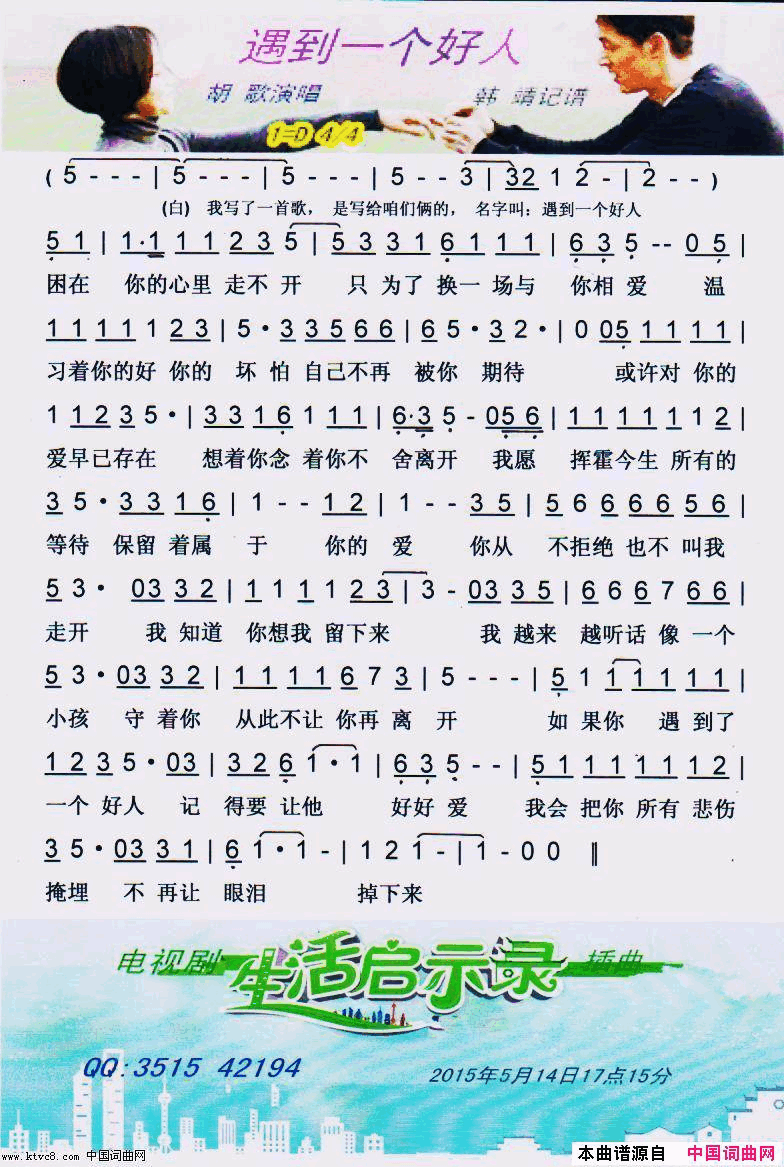 遇到一个好人
胡 歌演唱 韩 靖记谱
1=D 4/4
( 5 - - - | 5 - - - | 5 - - - | 5 - - 3 | 32 1 2 - | 2 - - )
(白) 我写了一首歌， 是写给咱们俩的， 名字叫：遇到一个好人
5 1 | 1·1 1 1 2 3 5 | 5 3 3 1 6 1 1 1 | 6 3 5 - - 0 5 |
困在 你的心里 走不 开 只 为了 换一 场与 你相 爱 温
1 1 1 1 1 2 3 | 5 · 3 3 5 6 6 | 6 5 · 3 2 · | 0 05 1 1 1 1 |
习着你的好 你的 坏 怕 自己不再 被你 期待 或许对 你的
1 1 2 3 5 · | 3 3 1 6 1 1 1 | 6·3 5 - 0 5 6 | 1 1 1 1 1 1 2 |
爱早已存在 想着你念 着你不 舍离开 我愿 挥霍今生 所有的
3 5 · 3 3 1 6 | 1 - - 1 2 | 1 - - 3 5 | 5 6 6 6 6 5 6 |
等待 保留 着属 于 你的 爱 你从 不拒绝 也不 叫我
5 3 · 03 3 2 | 1 1 1 1 1 2 3 | 3 - 03 3 5 | 6 6 6 7 6 6 |
走开 我 知道 你想我 留下来 我 越来 越听话 像 一个
5 3 · 03 3 2 | 1 1 1 1 6 7 3 | 5 - - - | 5 1 1 1 1 1 1 |
小孩 守 着你 从此不让 你再 离 开 如 果你 遇 到了
1 2 3 5 · 03 | 3 2 6 1 · 1 | 6 3 5 - - | 5 1 1 1 1 1 1 2 |
一个 好人 记 得要 让他 好好 爱 我会 把你 所有 悲伤
3 5 · 03 3 1 | 6 1 · 1 - | 1 2 1 - | 1 - 0 0 ‖
掩埋 不 再让 眼泪 掉下来
电视剧 生活启示录 插曲
QQ:3515 42194
2015年5月14日17点15分
www.ktvc8.com 中国词曲网
本曲谱源自 中国词曲网